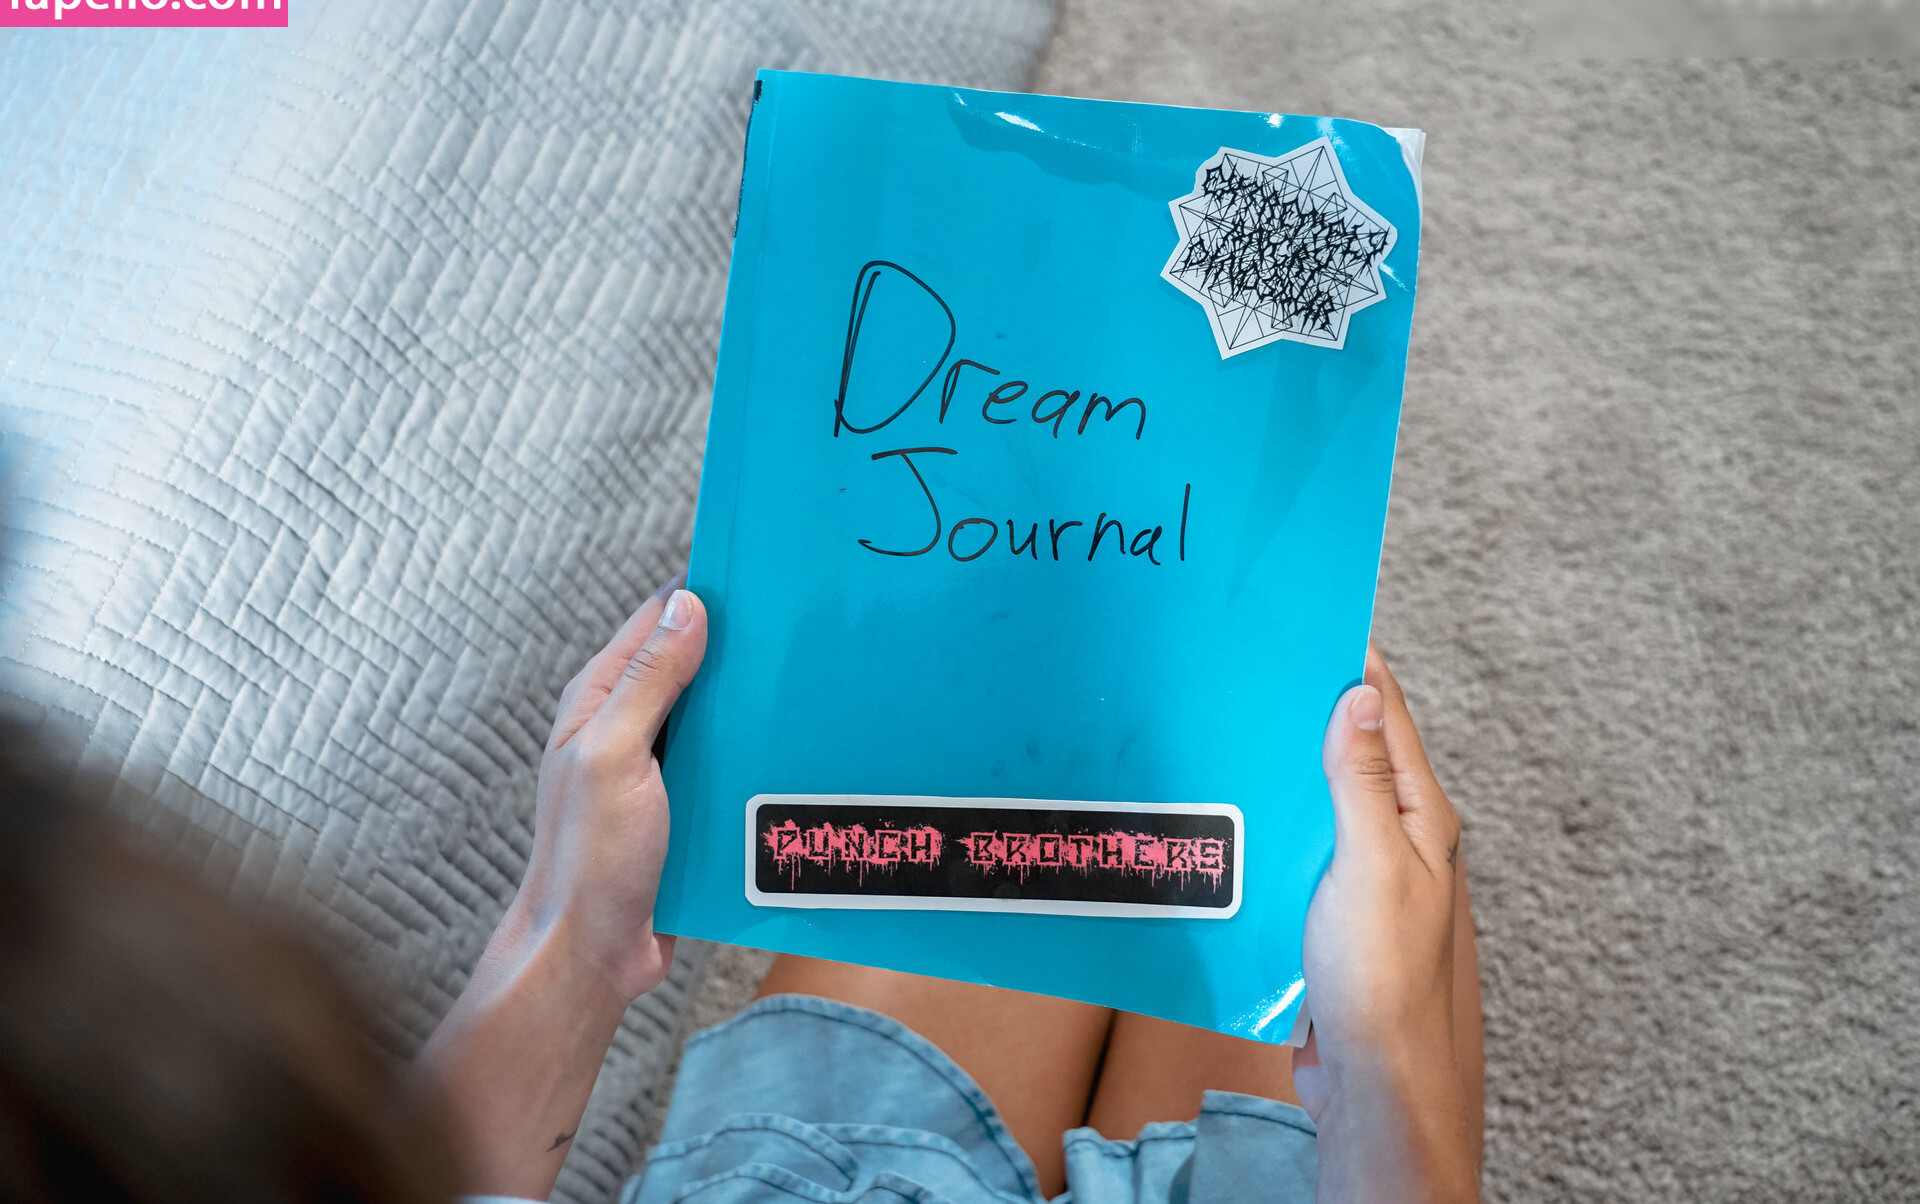 fapello.com
Dream
Journal
PUNCH BROTHERS